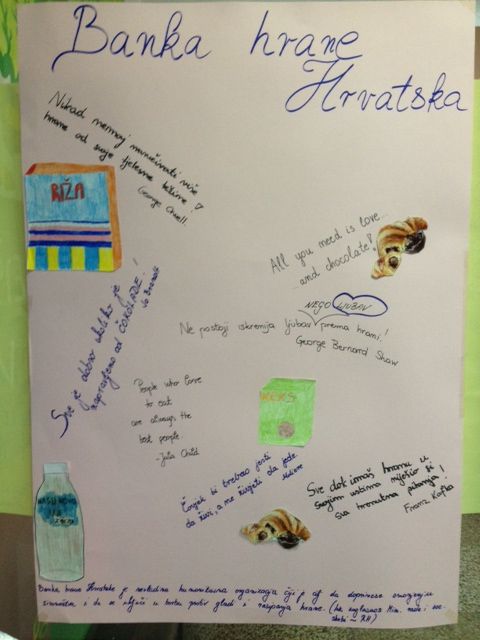 Banka hrane
Hrvatska
Nikad nemoj
više
hrane od svoje tjelesne težine!
George Orwell.
RIŽA
All you need is love...
...and chocolate!
Sve je dobro ukoliko je
napravljeno od ČOKOLADE!
Jo Brand
NEGO LJUBAV
Ne postoji iskrenija ljubav prema hrani!
George Bernard Shaw
People who love
to eat
are always the
best people
-Julia Child
KEKS
Čovjek bi trebao jesti
da živi, a ne živjeti da jede.
Moliere
Sve dok imaš hranu u
svojim ustima riješio si
sva trenutna pitanja!
Franz Kafka
Banka hrane Hrvatske je nevladina humanitarna organizacija čiji je cilj da doprinese smanjenju
siromaštva i da se uključi u borbu protiv gladi i rasipanja hrane.